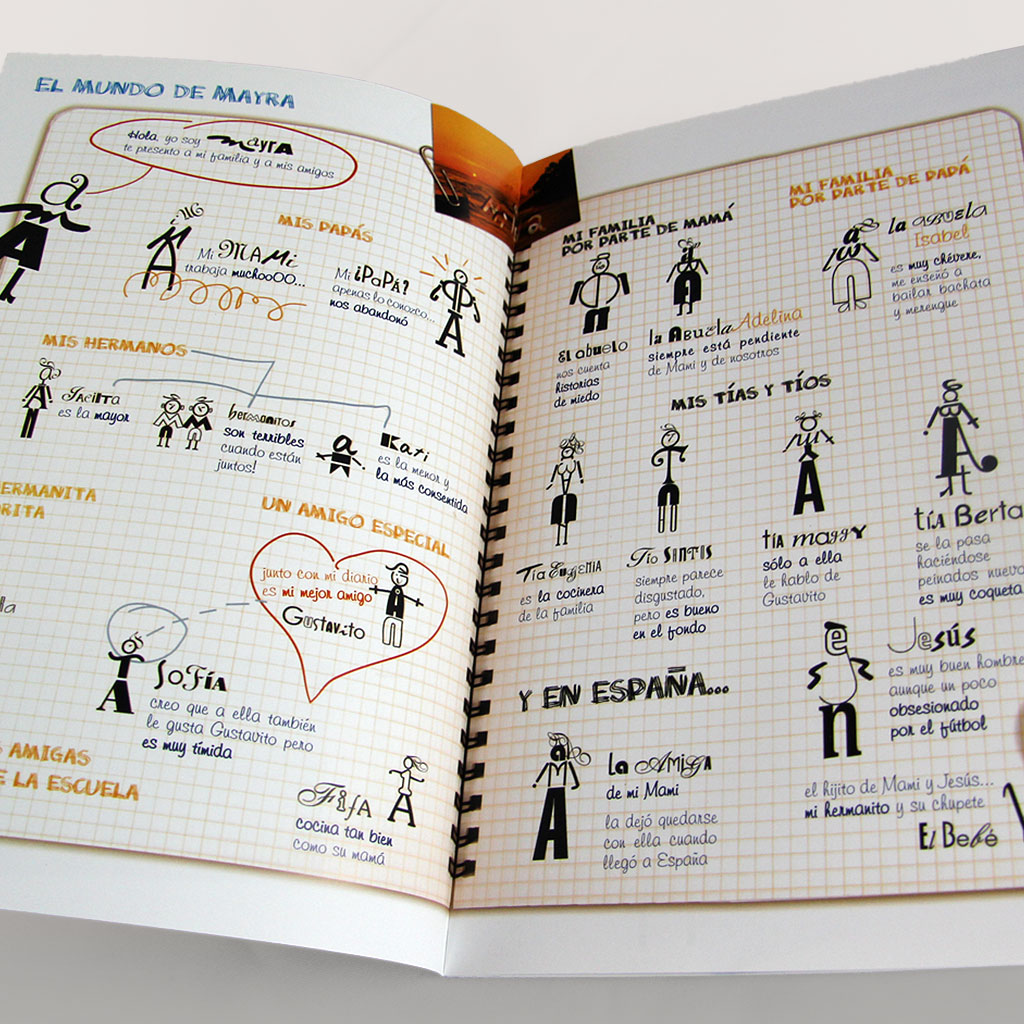 EL MUNDO DE MAYRA
Hola, yo soy mayra
te presento a mi familia y a mis amigos
MIS PAPÁS
Mi MAMi
trabaja muchooOO...
Mi ¡PaPÁ?
apenas lo conozco...
nos abandonó
MIS HERMANOS
es la mayor
hermanitos
son terribles
cuando están
juntos!
Kati
es la menor y
la más consentida
ERMANITA
RITA
UN AMIGO ESPECIAL
junto con mi diario
es mi mejor amigo
Gustavito
SoFía
creo que a ella también
le gusta Gustavito pero
es muy tímida
AMIGAS
E LA ESCUELA
FifA
cocina tan bien
como su mamá
MI FAMILIA
POR PARTE DE MAMÁ
El abuelo
nos cuenta
historias
de miedo
la Abuela Adelina
siempre está pendiente
de Mami y de nosotros
MI FAMILIA
POR PARTE DE PAPÁ
la aBUela
Isabel
es muy chévere,
me enseñó a
bailar bachata
y merengue
MIS TÍAS Y TÍOS
Tía EugENIA
es la cocinera
de la familia
Tío SINTIS
siempre parece
disgustado,
pero es bueno
en el fondo
tía maggy
sólo a ella
le hablo de
Gustavito
tía Berta
se la pasa
haciéndose
peinados nuevo
es muy coqueta
Y EN ESPAÑA...
La AmiGA
de mi Mami
la dejó quedarse
con ella cuando
llegó a España
Jesús
es muy buen hombre
aunque un poco
obsesionado
por el fútbol
el hijito de Mami y Jesús...
mi hermanito y su chupete
El Bebé